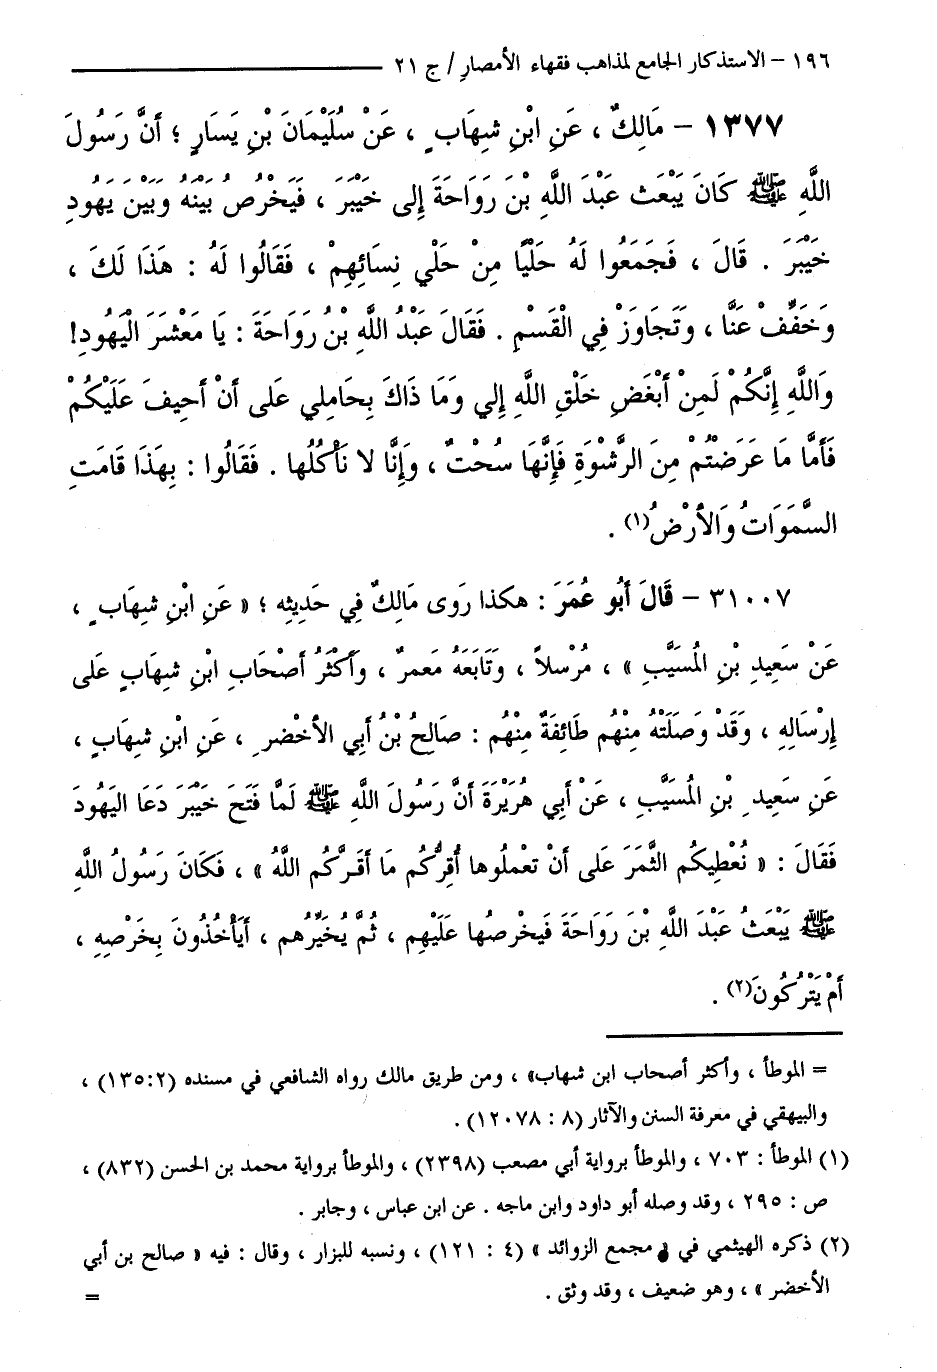 ١٩٦ – الاستذكار الجامع لمذاهب فقهاء الأمصار / ج ٢١
١٣٧٧ – مَالِكٌ ، عَنِ ابْنِ شِهَابٍ ، عَنْ سُلَيْمَانَ بْنِ يَسَارٍ ؛ أَنَّ رَسُولَ
اللَّهِ ﷺ كَانَ يَبْعَثُ عَبْدَ اللَّهِ بْنَ رَوَاحَةَ إِلى خَيْبَرَ ، فَيَخْرُصُ بَيْنَهُ وَبَيْنَ يَهُودِ
خَيْبَرَ . قَالَ ، فَجَمَعُوا لَهُ حَلْيًا مِنْ حَلْيِ نِسَائِهِمْ ، فَقَالُوا لَهُ : هَذَا لَكَ ،
وَخَفِّفْ عَنَّا ، وَتَجَاوَزْ فِي الْقَسْمِ . فَقَالَ عَبْدُ اللَّهِ بْنُ رَوَاحَةَ : يَا مَعْشَرَ الْيَهُودِ!
وَاللَّهِ إِنَّكُمْ لَمِنْ أَبْغَضِ خَلْقِ اللَّهِ إِلي وَمَا ذَاكَ بِحَامِلِي عَلى أَنْ أَحِيفَ عَلَيْكُمْ
فَأَمَّا مَا عَرَضْتُمْ مِنَ الرَّشْوَةِ فَإِنَّهَا سُحْتٌ ، وَإِنَّا لا نَأْكُلُها . فَقَالُوا : بِهَذَا قَامَتِ
السَّمَوَاتُ وَالأَرْضُ(١) .
٣١٠٠٧ – قَالَ أَبُو عُمَرَ : هكذا رَوى مَالِكٌ فِي حَدِيثِه ؛ « عَنِ ابْنِ شِهَابٍ ،
عَنْ سَعِيدِ بْنِ الْمُسَيَّبِ » ، مُرْسلاً ، وَتَابَعَهُ مَعمرٌ ، وَأَكْثَرُ أَصْحَابِ ابْنِ شِهَابٍ عَلى
إِرْسَالِهِ ، وَقَدْ وَصَلَتْهُ مِنْهُم طَائِفَةٌ مِنْهُم : صَالِحُ بْنُ أَبِي الأَخْضرِ ، عَنِ ابْنِ شِهَابٍ ،
عَنِ سَعِيدِ بْنِ الْمُسَيَّبِ ، عَنْ أَبِي هُرَيْرَةَ أَنَّ رَسُولَ اللَّهِ ﷺ لَمَّا فَتَحَ خَيْبَرَ دَعَا الْيَهُودَ
فَقَالَ : « نُعْطِيكُم الثَّمَرَ عَلى أَنْ تعْملُوها أُقِرُّكُم مَا أَقَرَّكُم اللَّهُ » ، فَكَانَ رَسُولُ اللَّهِ
ﷺ يَبْعَثُ عَبْدَ اللَّهِ بْنَ رَوَاحَةَ فَيَخْرصُها عَلَيْهِم ، ثُمَّ يُخَيِّرُهم ، أَيَأْخُذُونَ بِخَرْصِهِ ،
أَمْ يَتْرُكُونَ(٢) .
= الموطأ ، وأكثر أصحاب ابن شهاب» ، ومن طريق مالك رواه الشافعي في مسنده (٢:١٣٥) ،
والبيهقي في معرفة السنن والآثار (٨ : ١٢٠٧٨) .
(١) الموطأ : ٧٠٣ ، والموطأ برواية أبي مصعب (٢٣٩٨) ، والموطأ برواية محمد بن الحسن (٨٣٢) ،
ص : ٢٩٥ ، وقد وصله أبو داود وابن ماجه . عن ابن عباس ، وجابر .
(٢) ذكره الهيثمي في « مجمع الزوائد » (٤ : ١٢١) ، ونسبه للبزار ، وقال : فيه « صالح بن أبي
الأخضر » ، وهو ضعيف ، وقد وثق .
=